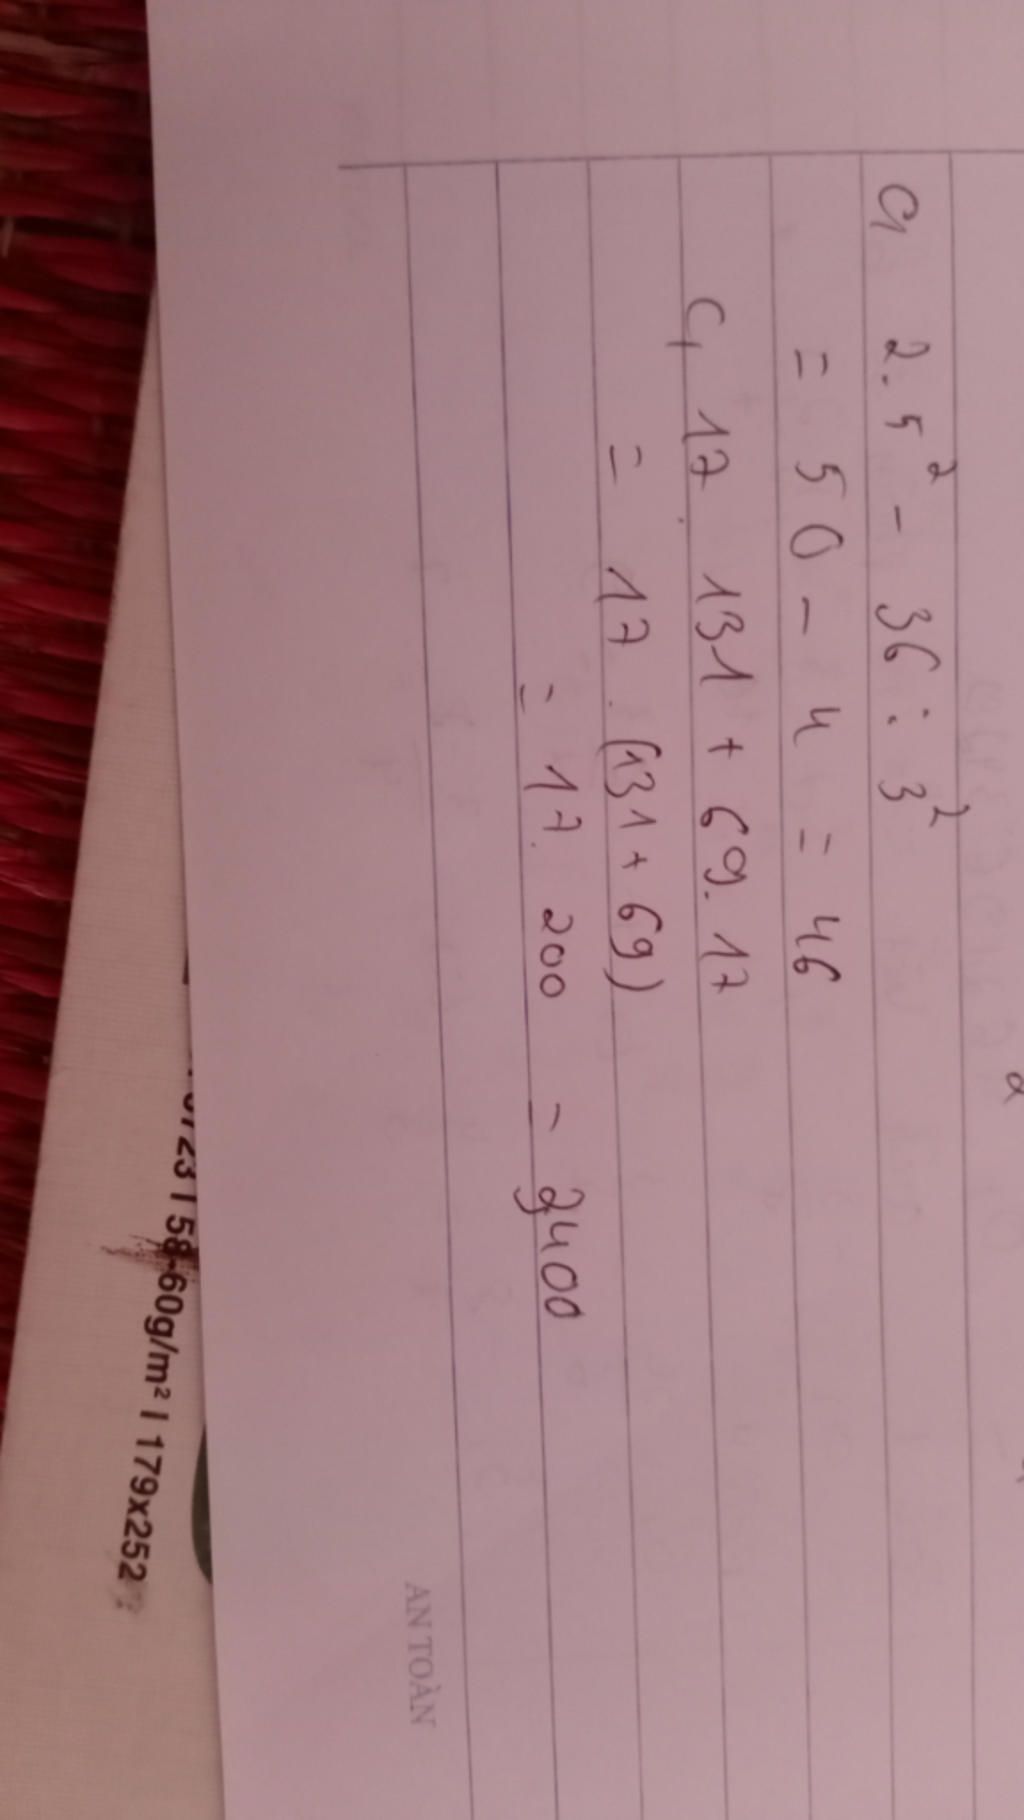 a, 2.5² - 36 : 3²
= 50 - 4 = 46
c, 17. 131 + 69.17
= 17 . (131 + 69)
= 17. 200 = 3400
AN TOÀN
0723 I 58-60g/m² I 179x252